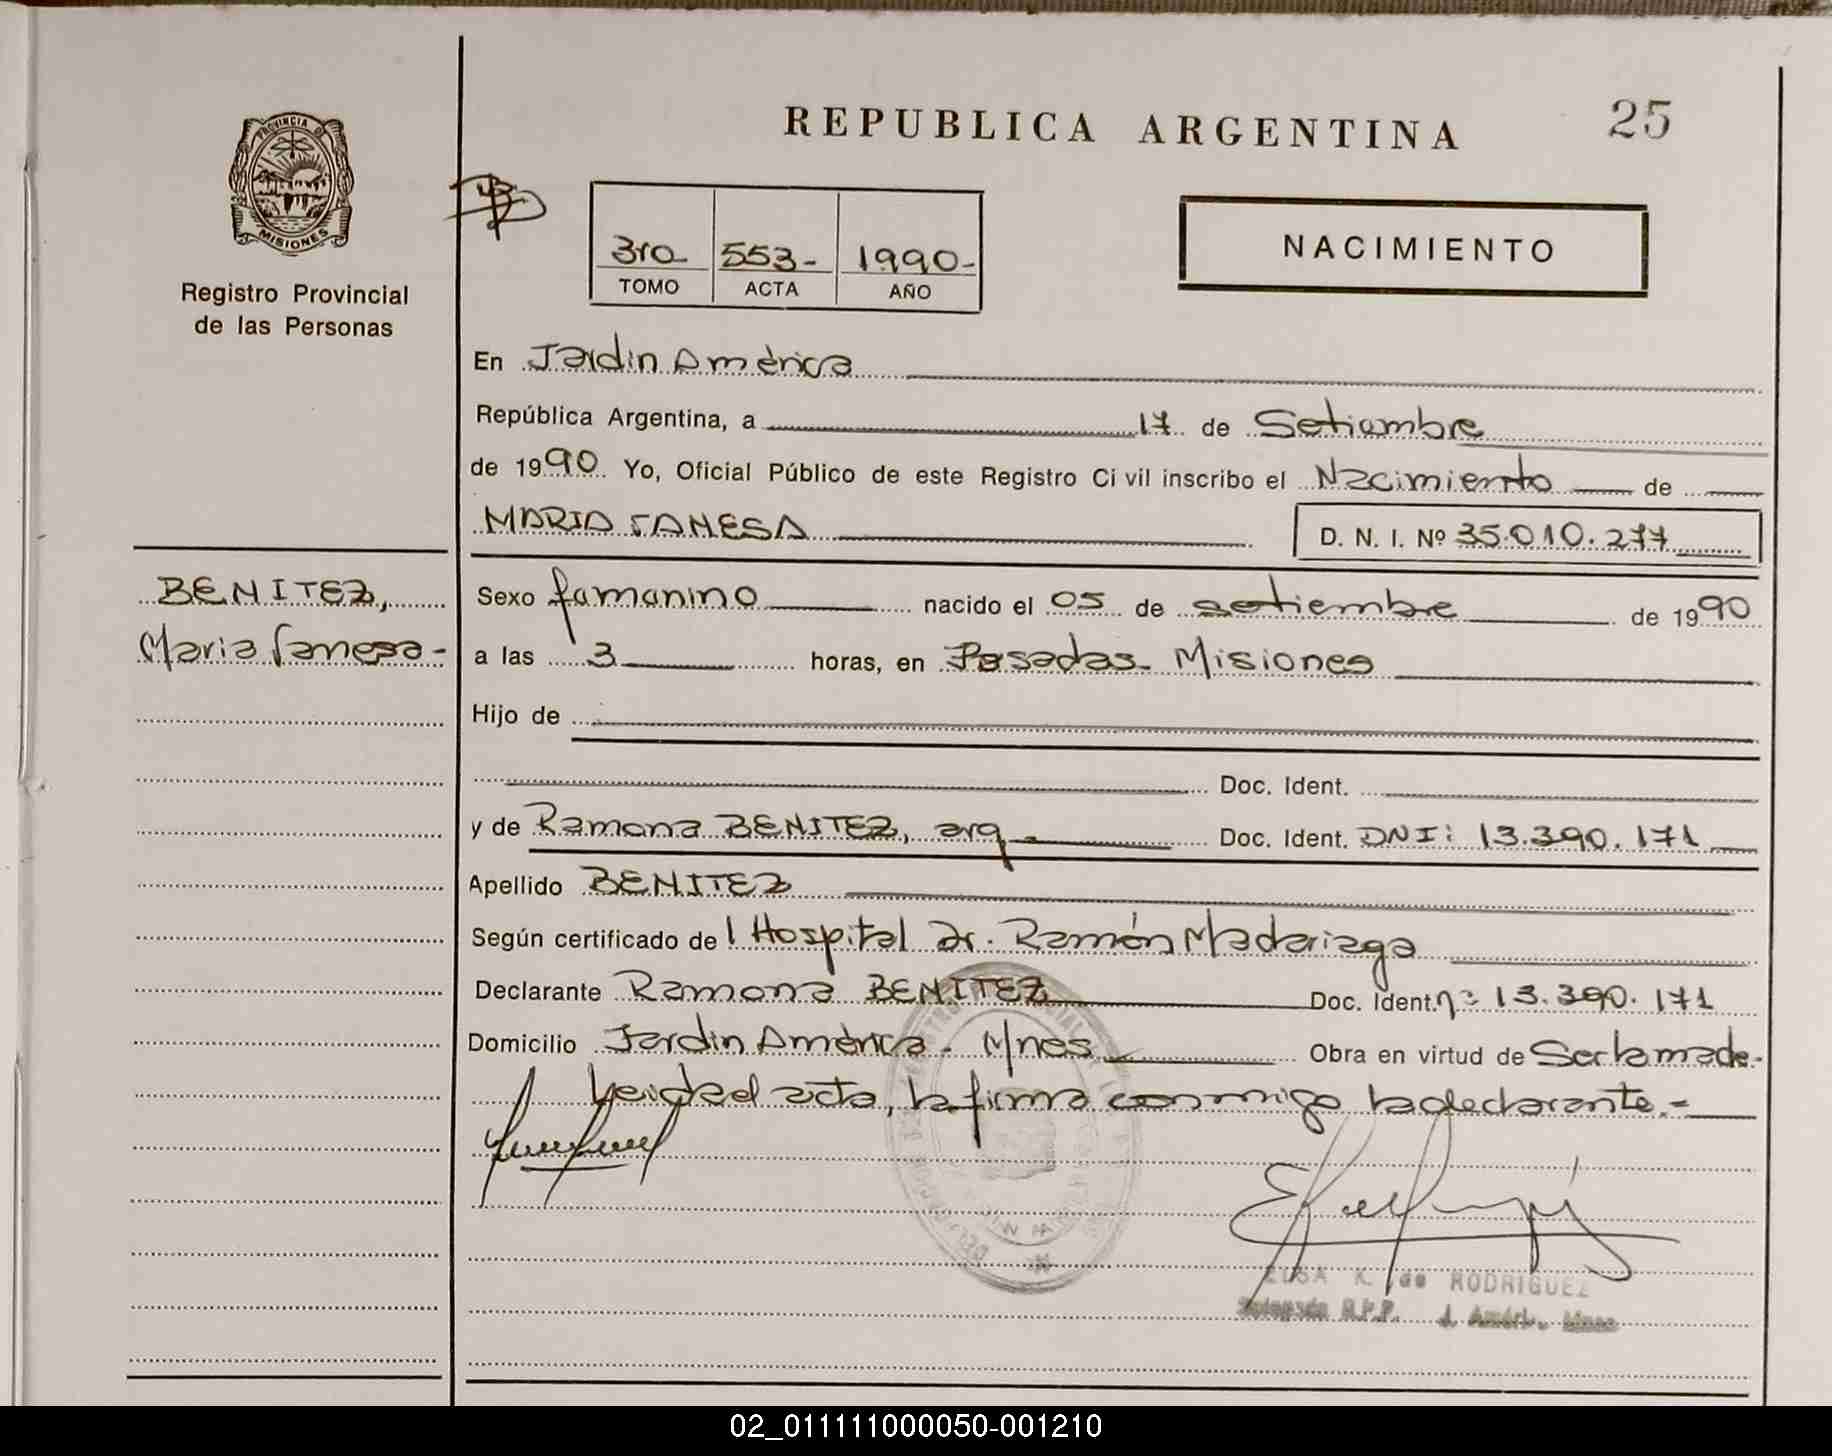 REPUBLICA ARGENTINA
25
PROVINCIA DE
MISIONES
Registro Provincial
de las Personas
3ro 553- 1990-
TOMO ACTA AÑO
NACIMIENTO
En Jardin América
República Argentina, a 17 de Setiembre
de 1990 Yo, Oficial Público de este Registro Civil inscribo el Nacimiento de
MARIA VANESA D. N. I. Nº 35.010.277
BENITEZ,
Maria Vanesa-
Sexo femenino nacido el 05 de setiembre de 1990
a las 3 horas, en Posadas- Misiones
Hijo de
Doc. Ident.
y de Ramona BENITEZ, arg Doc. Ident. DNI: 13.390.171
Apellido BENITEZ
Según certificado del Hospital Dr. Ramón Madariaga
Declarante Ramona BENITEZ Doc. Ident. nº 13.390.171
Domicilio Jardin América- Mnes Obra en virtud de Ser la made-
leida el acta, la firma conmigo la declarante.-
ELSA K. de RODRIGUEZ
Delegada R.P.P. J. Améri. Mnes
02_011111000050-001210